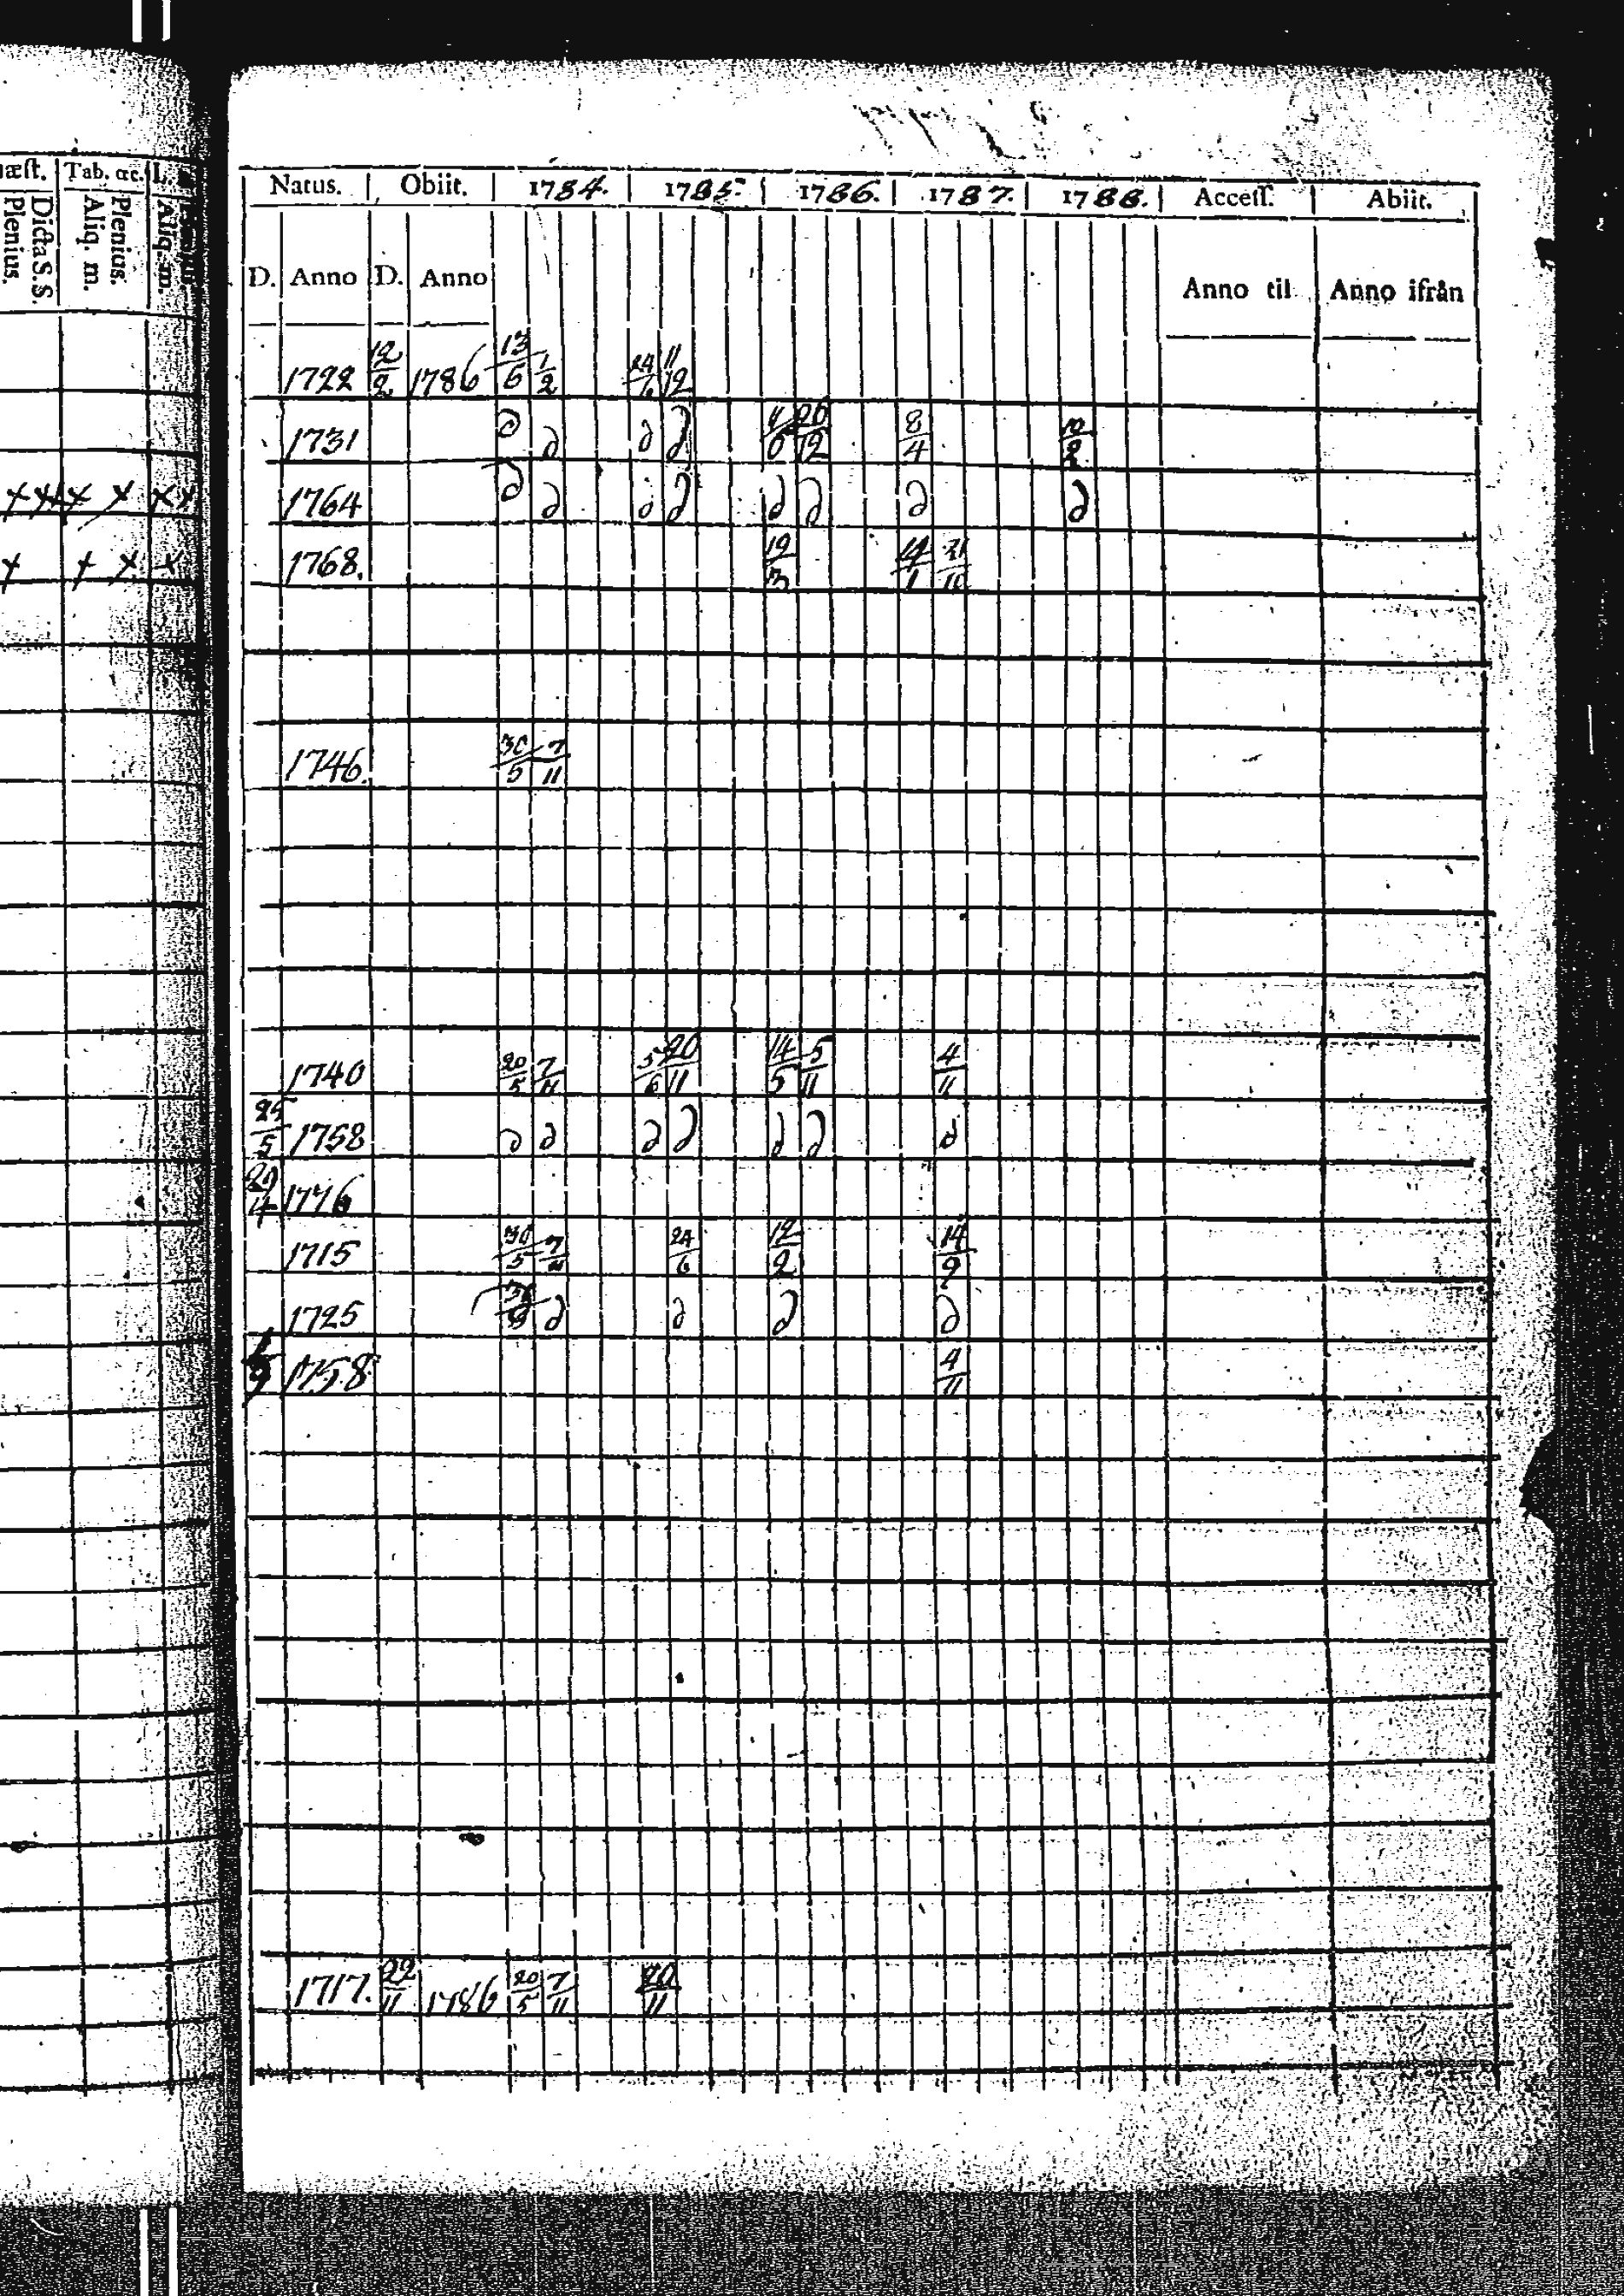 æſt. Tab. &c. L.
Dicta S. S. Plenius. Plenius. Aliq. m. Aliq. m.
Natus. Obiit. 1784. 1785. 1786. 1787. 1788. Acceſſ. Abiit.
D. Anno D. Anno Anno til Anno ifrån
1722 12/2 1786 13/6 1/2 24/6 11/12
1731 d d d d 26/12 8/4 10/2
x x x x x x 1764 d d d d d d d d
x x x x 1768. 19/3 14/1 21/11
1746. 30/5 7/11
1740 20/5 7/11 5/6 20/11 14/5 5/11 4/11
24/5 1758 d d d d d d d
29/4 1776
1715 30/5 7/11 24/6 12/2 14/9
1725 d d d d
1758 4/11
1717. 22/11 1786 20/5 7/11 20/11